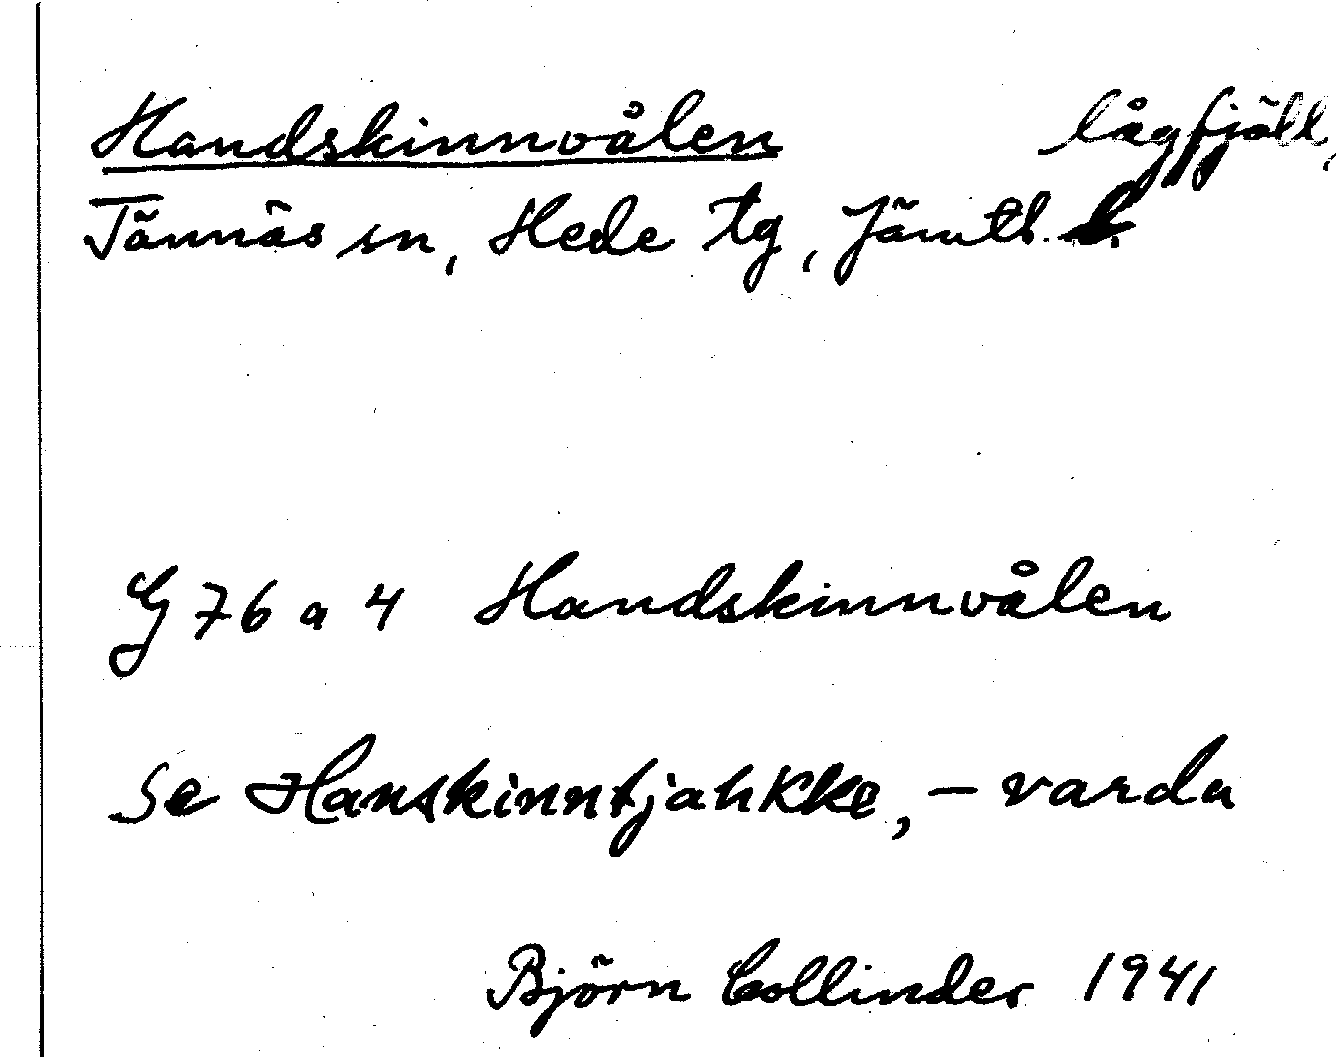 Handskinnvålen lågfjäll,
Tännäs sn, Hede tg, Jämtl. l.
G 76 a 4 Handskinnvålen
Se Hanskinntjahkke, - varda
Björn Collinder 1941